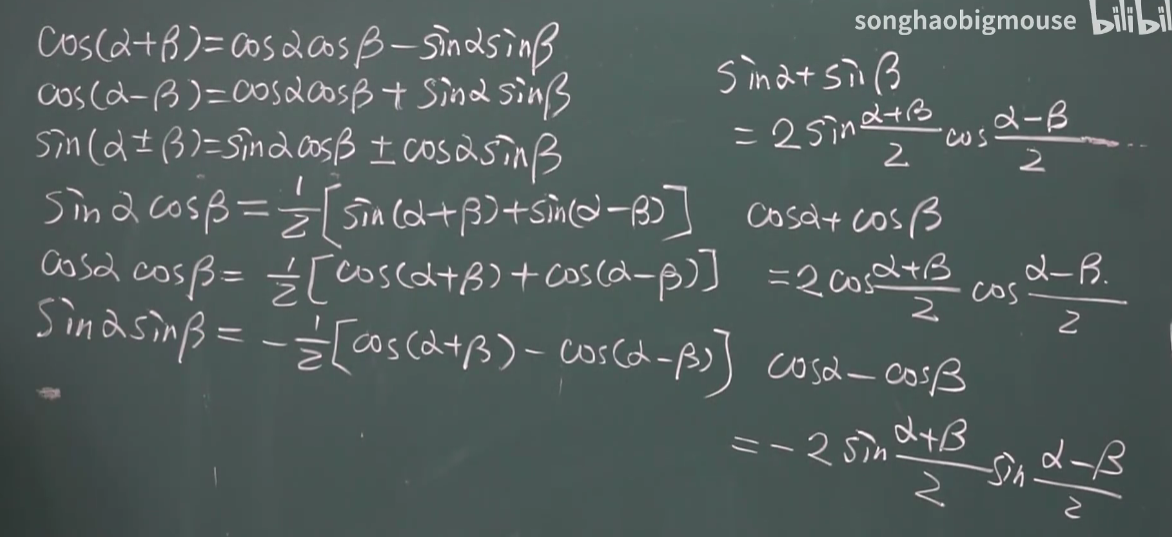 songhaobigmouse bilibili
cos(α+β)=cosαcosβ−sinαsinβ
cos(α−β)=cosαcosβ+sinαsinβ
sin(α±β)=sinαcosβ±cosαsinβ
sinαcosβ=1/2[sin(α+β)+sin(α−β)]
cosαcosβ=1/2[cos(α+β)+cos(α−β)]
sinαsinβ=−1/2[cos(α+β)−cos(α−β)]
sinα+sinβ
=2sin α+β/2 cos α−β/2
cosα+cosβ
=2cos α+β/2 cos α−β/2
cosα−cosβ
=−2sin α+β/2 sin α−β/2